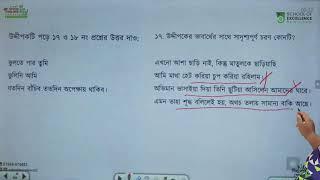 SCHOOL OF
EXCELLENCE
উদ্দীপকটি পড়ে ১৭ ও ১৮ নং প্রশ্নের উত্তর দাও:
ভুলতে পার তুমি
ভুলিনি আমি
যতদিন বাঁচিব ততদিন অপেক্ষায় থাকিব।
১৭. উদ্দীপকের ভাবার্থের সাথে সাদৃশ্যপূর্ণ চরণ কোনটি?
এখনো আশা ছাড়ি নাই, কিন্তু মাতুলকে ছাড়িয়াছি
আমি মাথা হেঁট করিয়া চুপ করিয়া রহিলাম
অভিমান ভাসাইয়া দিয়া তিনি ছুটিয়া আসিলেন আমাদের দ্বারে।
এমন তাহা শূন্য বলিলেই হয়, অথচ তলায় সামান্য বাকি আছে।